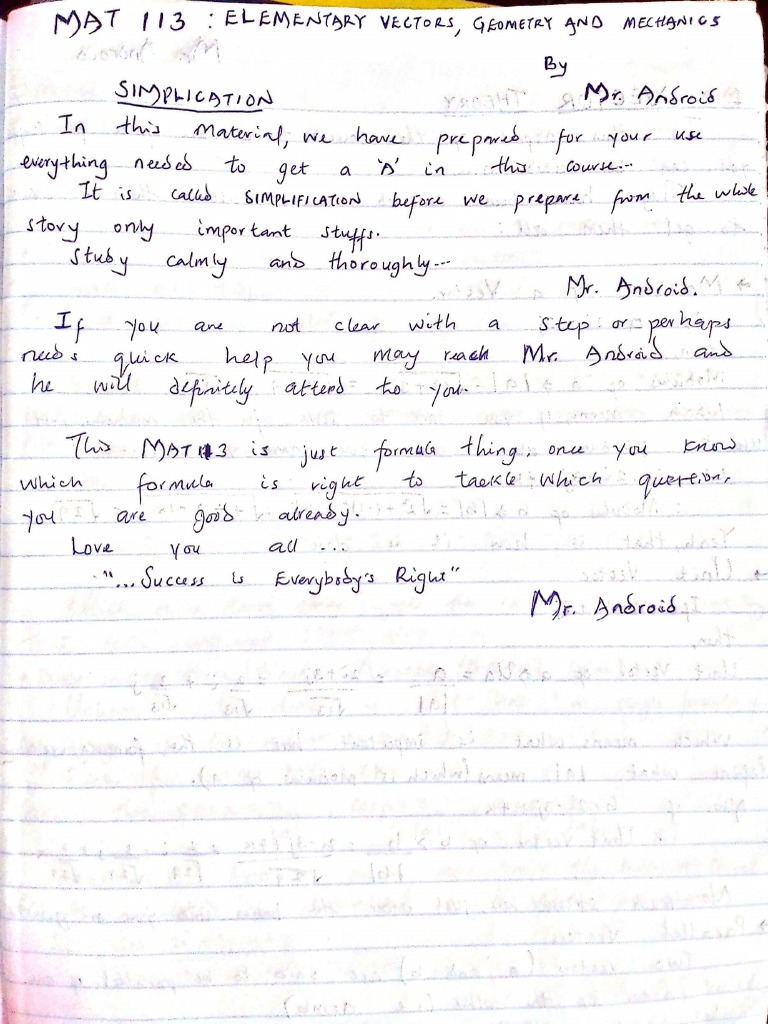 MAT 113 : ELEMENTARY VECTORS, GEOMETRY AND MECHANICS
By
SIMPLICATION Mr. Android
In this material, we have prepared for your use
everything needed to get a 'A' in this course...
It is called SIMPLIFICATION before we prepare from the whole
story only important stuffs.
Study calmly and thoroughly...
Mr. Android.
If you are not clear with a step or perhaps
needs quick help you may reach Mr. Android and
he will definitely attend to you.
This MAT 113 is just formula thing, once you know
which formula is right to tackle which question,
you are good already.
Love you all ...
"... Success is Everybody's Right"
Mr. Android